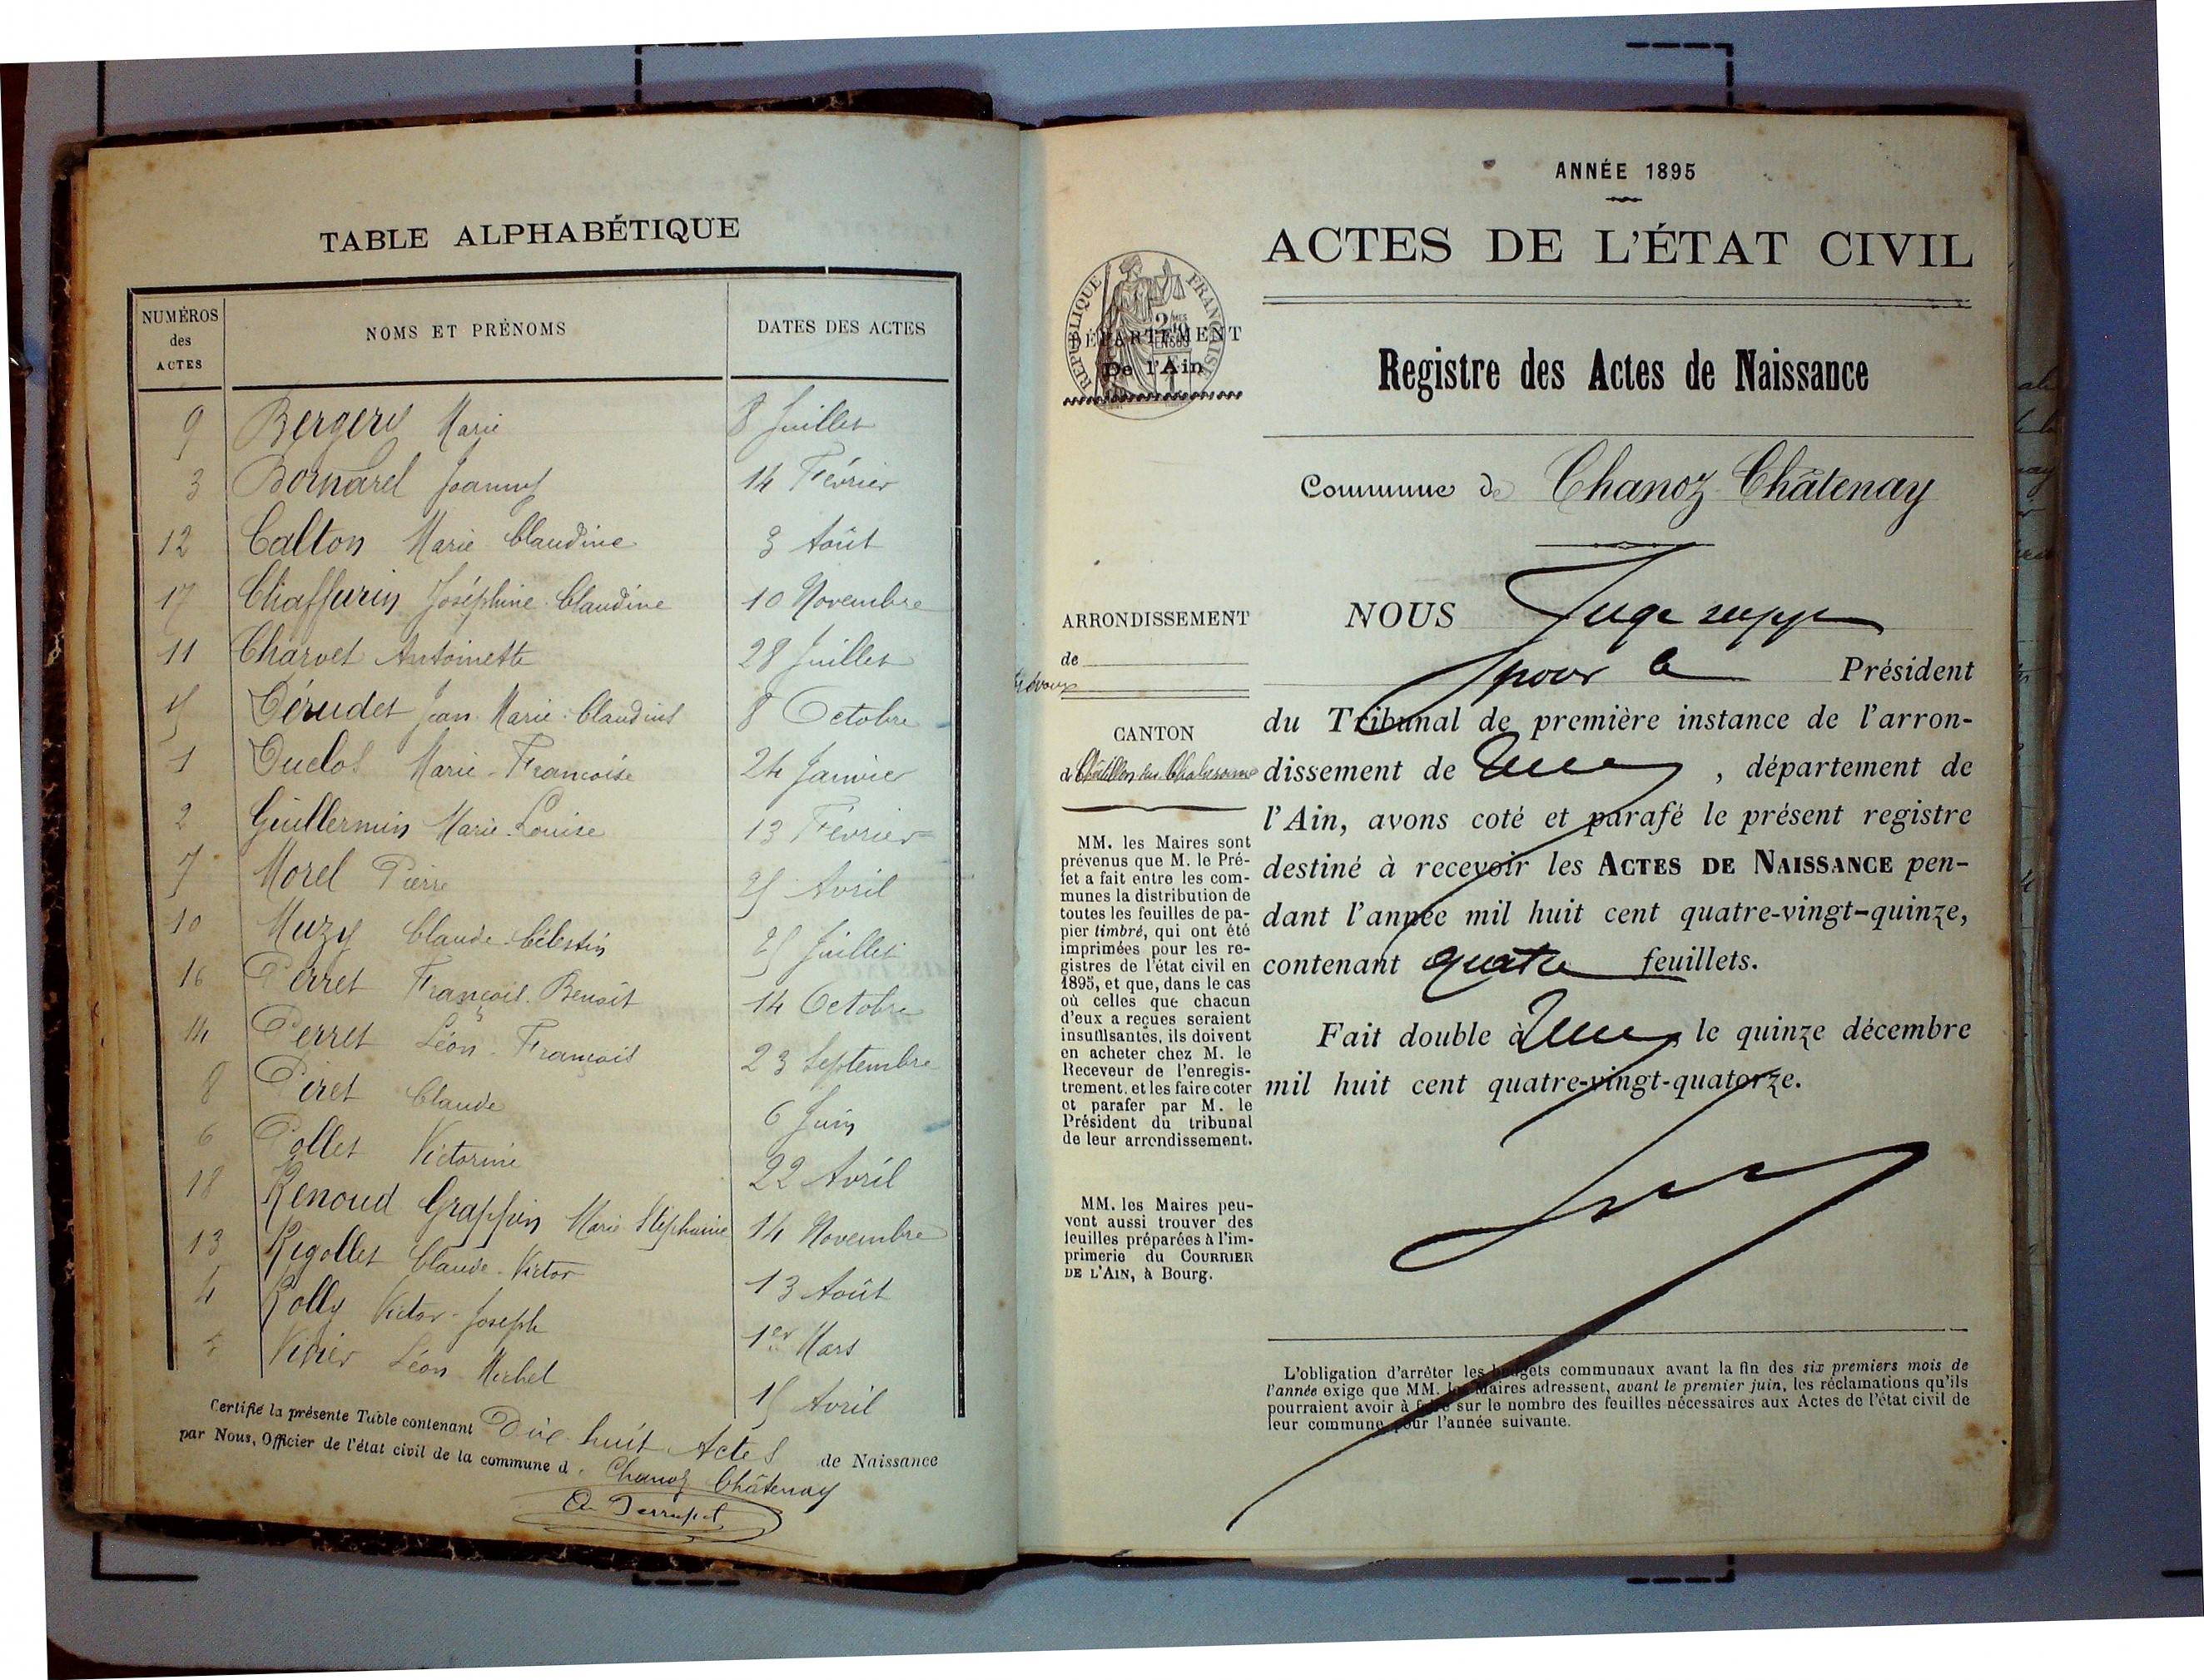 TABLE ALPHABÉTIQUE
NUMÉROS des ACTES NOMS ET PRÉNOMS DATES DES ACTES
9 Bergery Marie 8 Juillet
3 Bornarel Joanny 14 Février
12 Calton Marie Claudine 3 Août
17 Chaffurin Joséphine Claudine 10 Novembre
11 Charvet Antoinette 28 Juillet
15 Dérudet Jean Marie Claudius 8 Octobre
1 Duclos Marie-Françoise 24 Janvier
2 Guillermin Marie-Louise 13 Février
7 Morel Pierre 25 Avril
10 Muzy Claude-Célestin 25 Juillet
16 Perret François-Benoît 14 Octobre
14 Perret Léon-François 23 Septembre
8 Piret Claude 6 Juin
6 Pollet Victorine 22 Avril
18 Renoud Grappin Marie Stéphanie 14 Novembre
13 Rigollet Claude-Victor 13 Août
4 Rolly Victor-Joseph 1er Mars
5 Vivier Léon Michel 15 Avril
Certifié la présente Table contenant Dix-huit Actes de Naissance
par Nous, Officier de l'état civil de la commune d. Chanoz Châtenay
ANNÉE 1895
ACTES DE L'ÉTAT CIVIL
RÉPUBLIQUE FRANÇAISE
DÉPARTEMENT
De l'Ain
Registre des Actes de Naissance
Commune de Chanoz-Châtenay
ARRONDISSEMENT
de
Trévoux
CANTON
d Châtillon sur Chalaronne
MM. les Maires sont
prévenus que M. le Pré-
fet a fait entre les com-
munes la distribution de
toutes les feuilles de pa-
pier timbré, qui ont été
imprimées pour les re-
gistres de l'état civil en
1895, et que, dans le cas
où celles que chacun
d'eux a reçues seraient
insuffisantes, ils doivent
en acheter chez M. le
Receveur de l'enregis-
trement, et les faire coter
et parafer par M. le
Président du tribunal
de leur arrondissement.
MM. les Maires peu-
vent aussi trouver des
feuilles préparées à l'im-
primerie du COURRIER
DE L'AIN, à Bourg.
NOUS Juge supp
pour le Président
du Tribunal de première instance de l'arron-
dissement de , département de
l'Ain, avons coté et parafé le présent registre
destiné à recevoir les ACTES DE NAISSANCE pen-
dant l'année mil huit cent quatre-vingt-quinze,
contenant quatre feuillets.
Fait double à le quinze décembre
mil huit cent quatre-vingt-quatorze.
L'obligation d'arrêter les budgets communaux avant la fin des six premiers mois de
l'année exige que MM. les Maires adressent, avant le premier juin, les réclamations qu'ils
pourraient avoir à faire sur le nombre des feuilles nécessaires aux Actes de l'état civil de
leur commune pour l'année suivante.